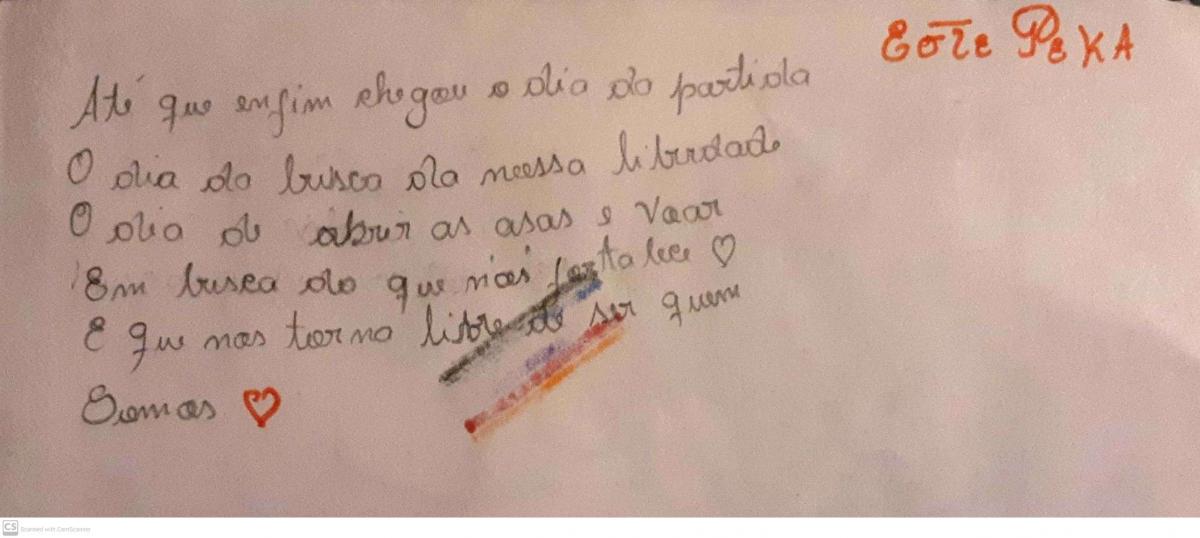 Eote PEKA
Até que enfim chegou o dia da partida
O dia da busca da nossa liberdade
O dia de abrir as asas e Voar
Em busca do que nos fortalece ♡
E que nos torna libre de ser quem
Somos ♡
CS Scanned with CamScanner